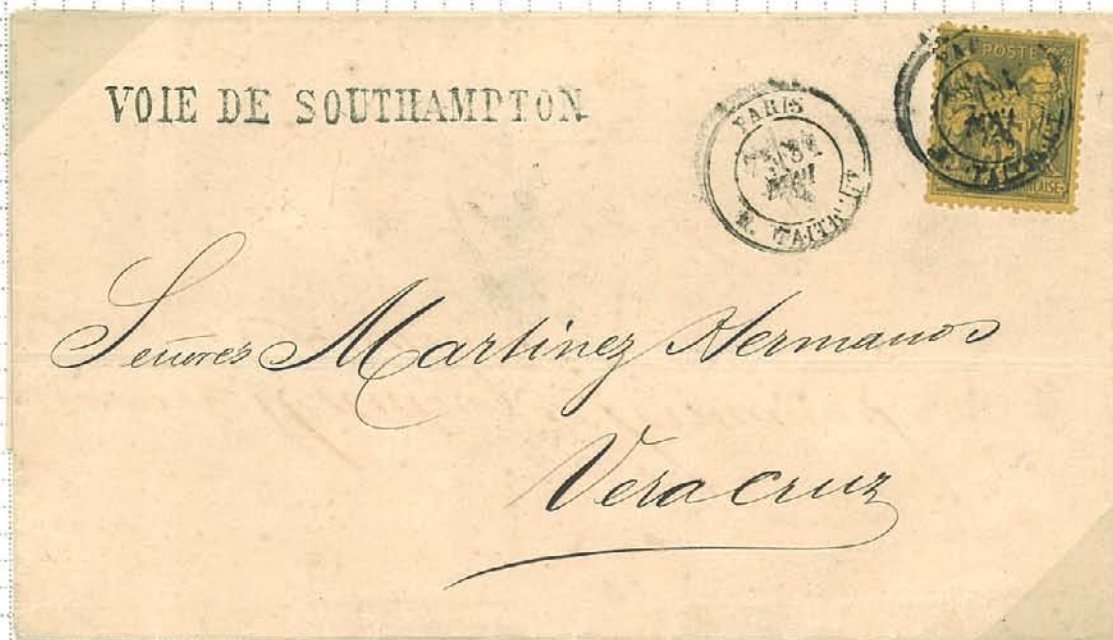 VOIE DE SOUTHAMPTON
PARIS
R. TAITBOUT
POSTE
Señores Martinez Hermanos
Veracruz